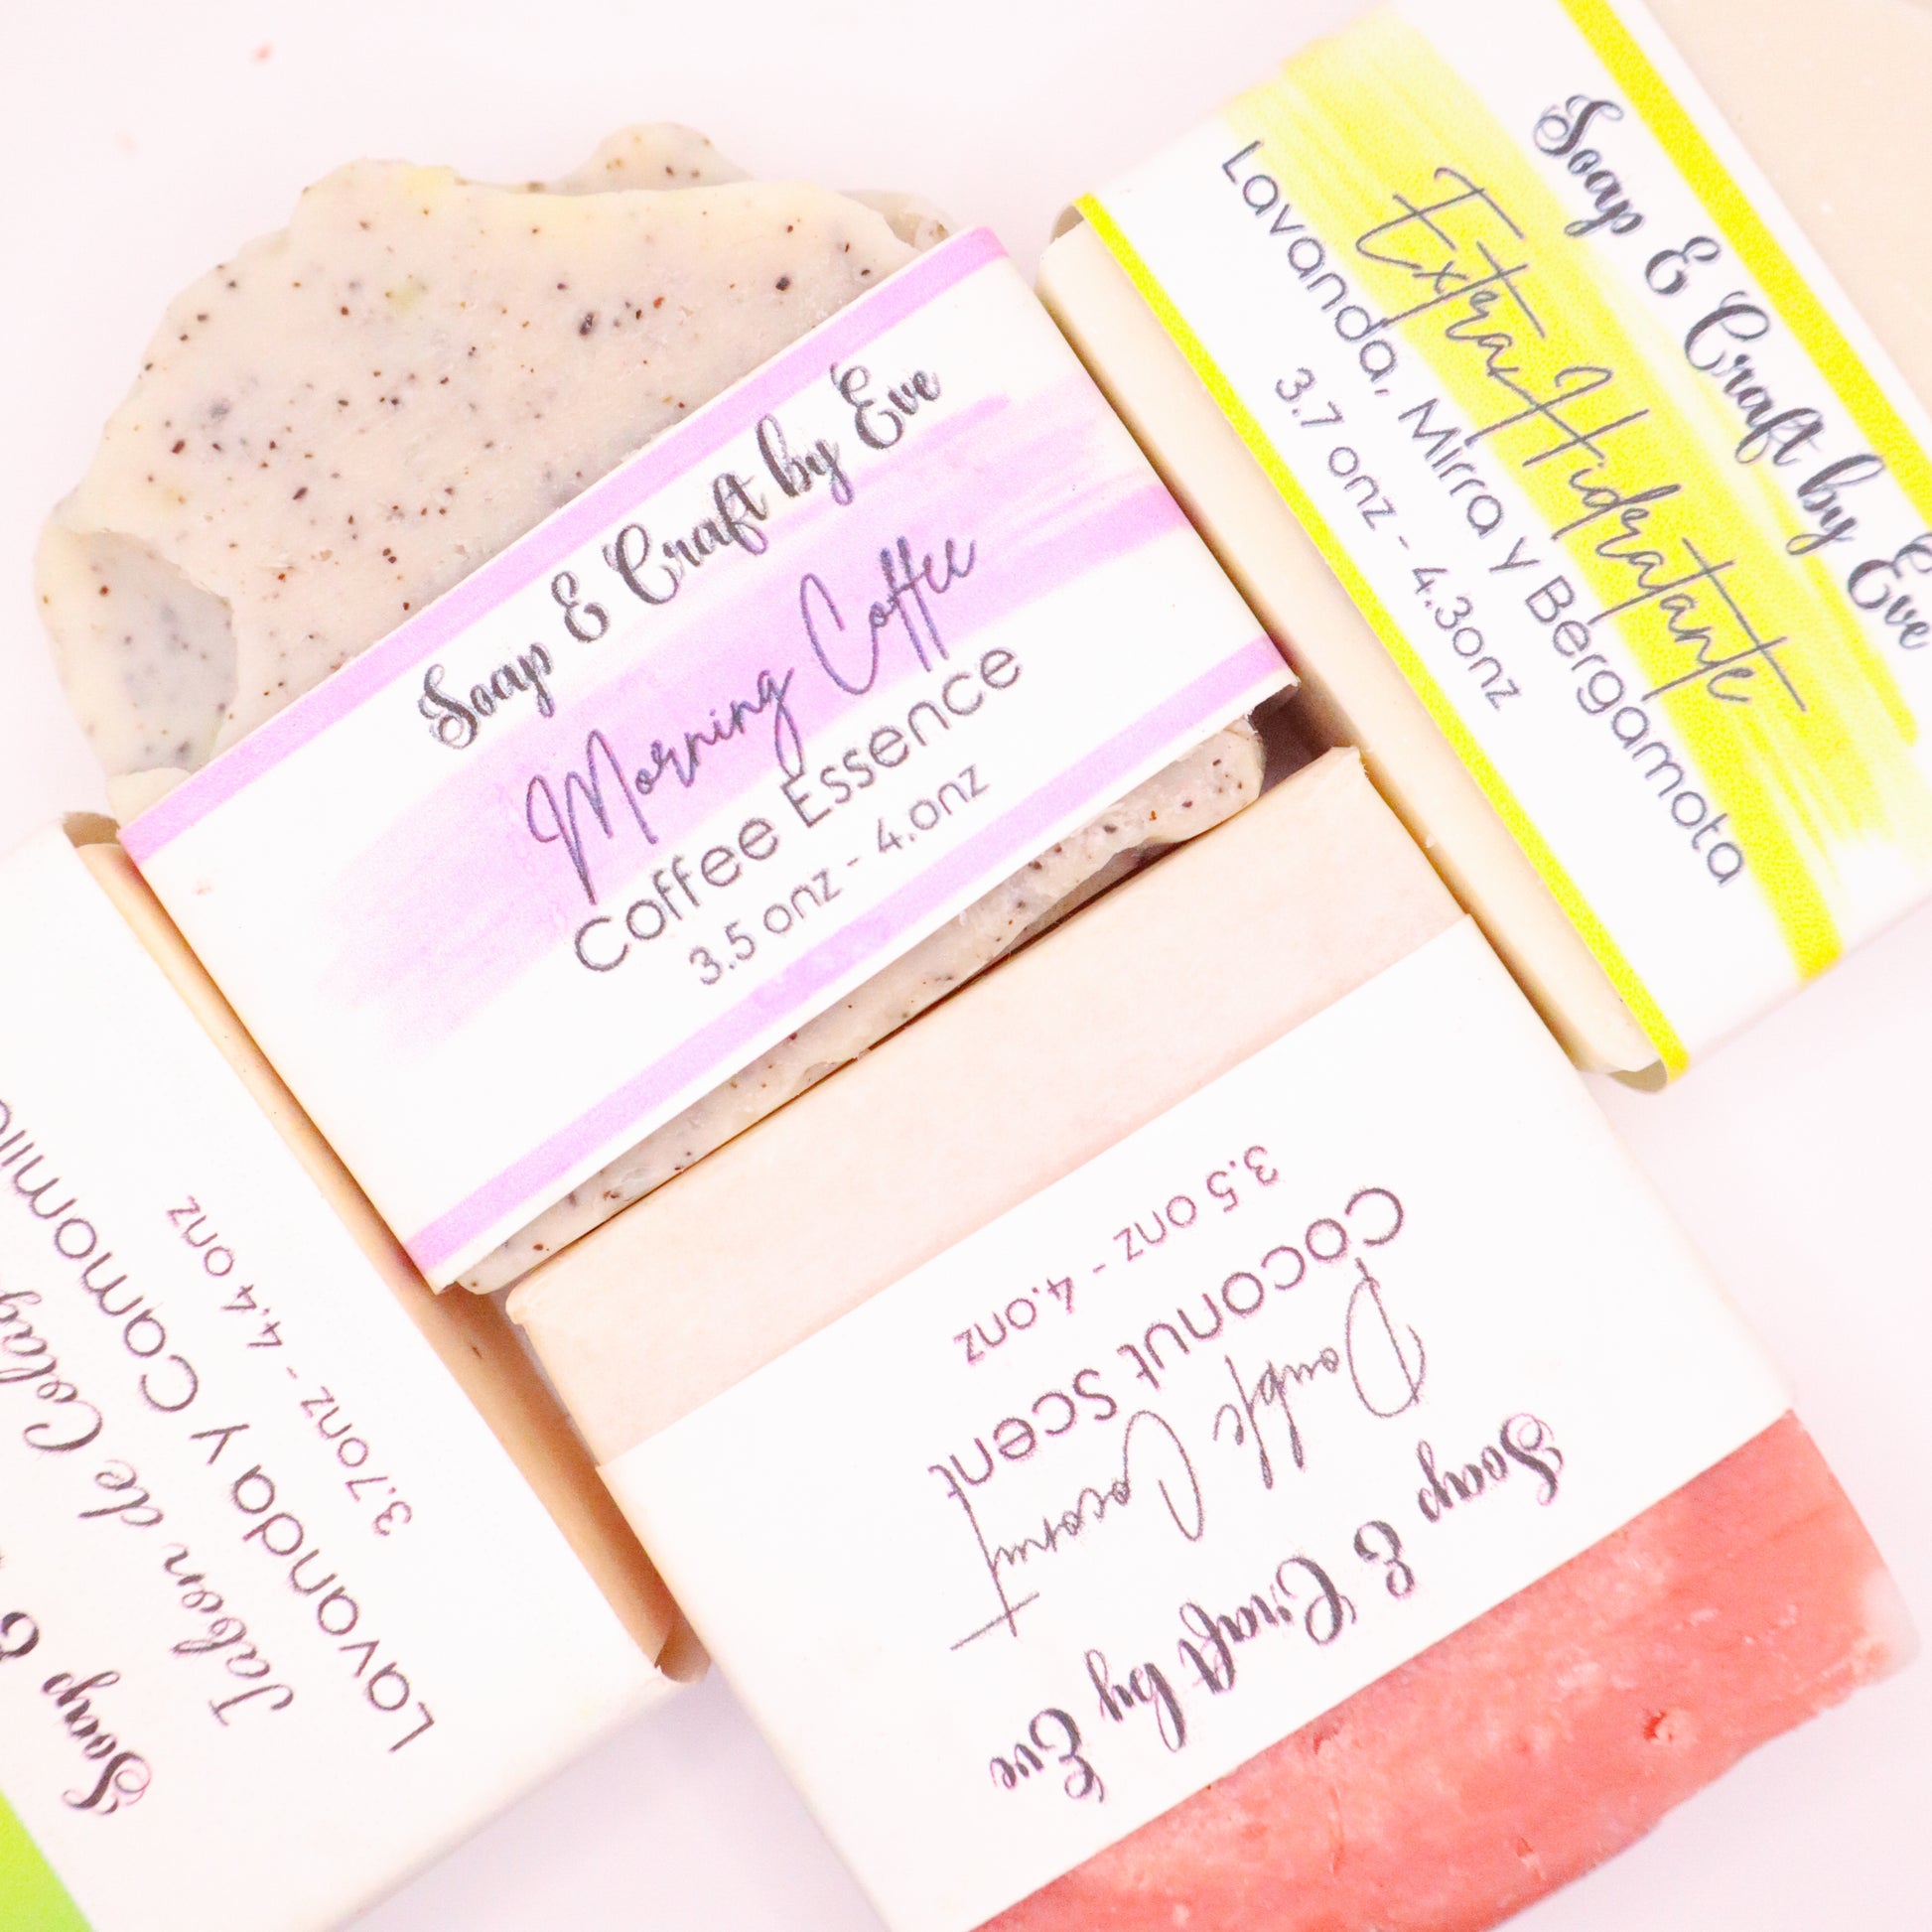 Soap & Craft by Eve
Morning Coffee
Coffee Essence
3.5 onz - 4.onz
Soap & Craft by Eve
Extra Hidratante
Lavanda, Mirra y Bergamota
3.7 onz - 4.3onz
Soap & Craft by Eve
Double Coconut
Coconut Scent
3.5 onz - 4.onz
Soap &
Jabon de
Lavanda y
3.7onz - 4.4 onz